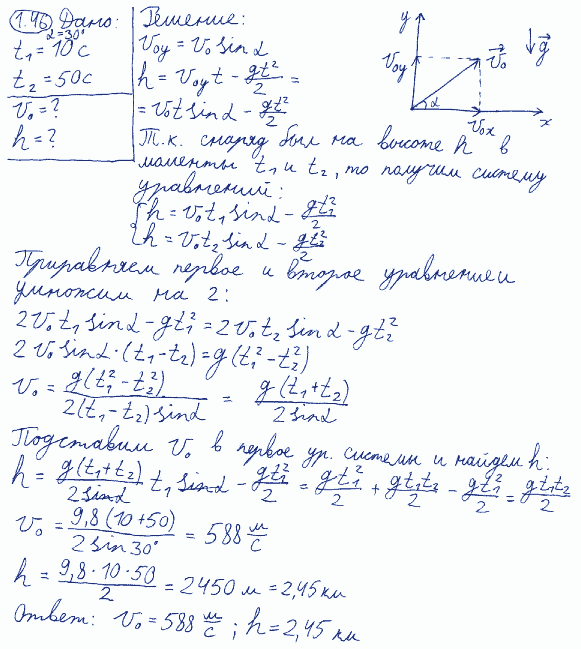 1.46 Дано:
α=30°
t₁=10c
t₂=50c
v₀=?
h=?
Решение:
v₀y=v₀ sinα
h=v₀yt-gt²/2=
=v₀t sinα-gt²/2
y
v₀y
v⃗₀
g⃗
α
v₀x
x
Т.к. снаряд был на высоте h в
моменты t₁ и t₂, то получим систему
уравнений:
{h=v₀t₁ sinα-gt₁²/2
{h=v₀t₂ sinα-gt₂²/2
Приравняем первое и второе уравнение и
умножим на 2:
2v₀t₁ sinα-gt₁²=2v₀t₂ sinα-gt₂²
2v₀ sinα·(t₁-t₂)=g(t₁²-t₂²)
v₀=g(t₁²-t₂²)/2(t₁-t₂)sinα=g(t₁+t₂)/2sinα
Подставим v₀ в первое ур. системы и найдем h:
h=g(t₁+t₂)/2sinα t₁ sinα-gt₁²/2=gt₁²/2+gt₁t₂/2-gt₁²/2=gt₁t₂/2
v₀=9,8(10+50)/2sin30°=588 м/с
h=9,8·10·50/2=2450 м=2,45 км
Ответ: v₀=588 м/с; h=2,45 км